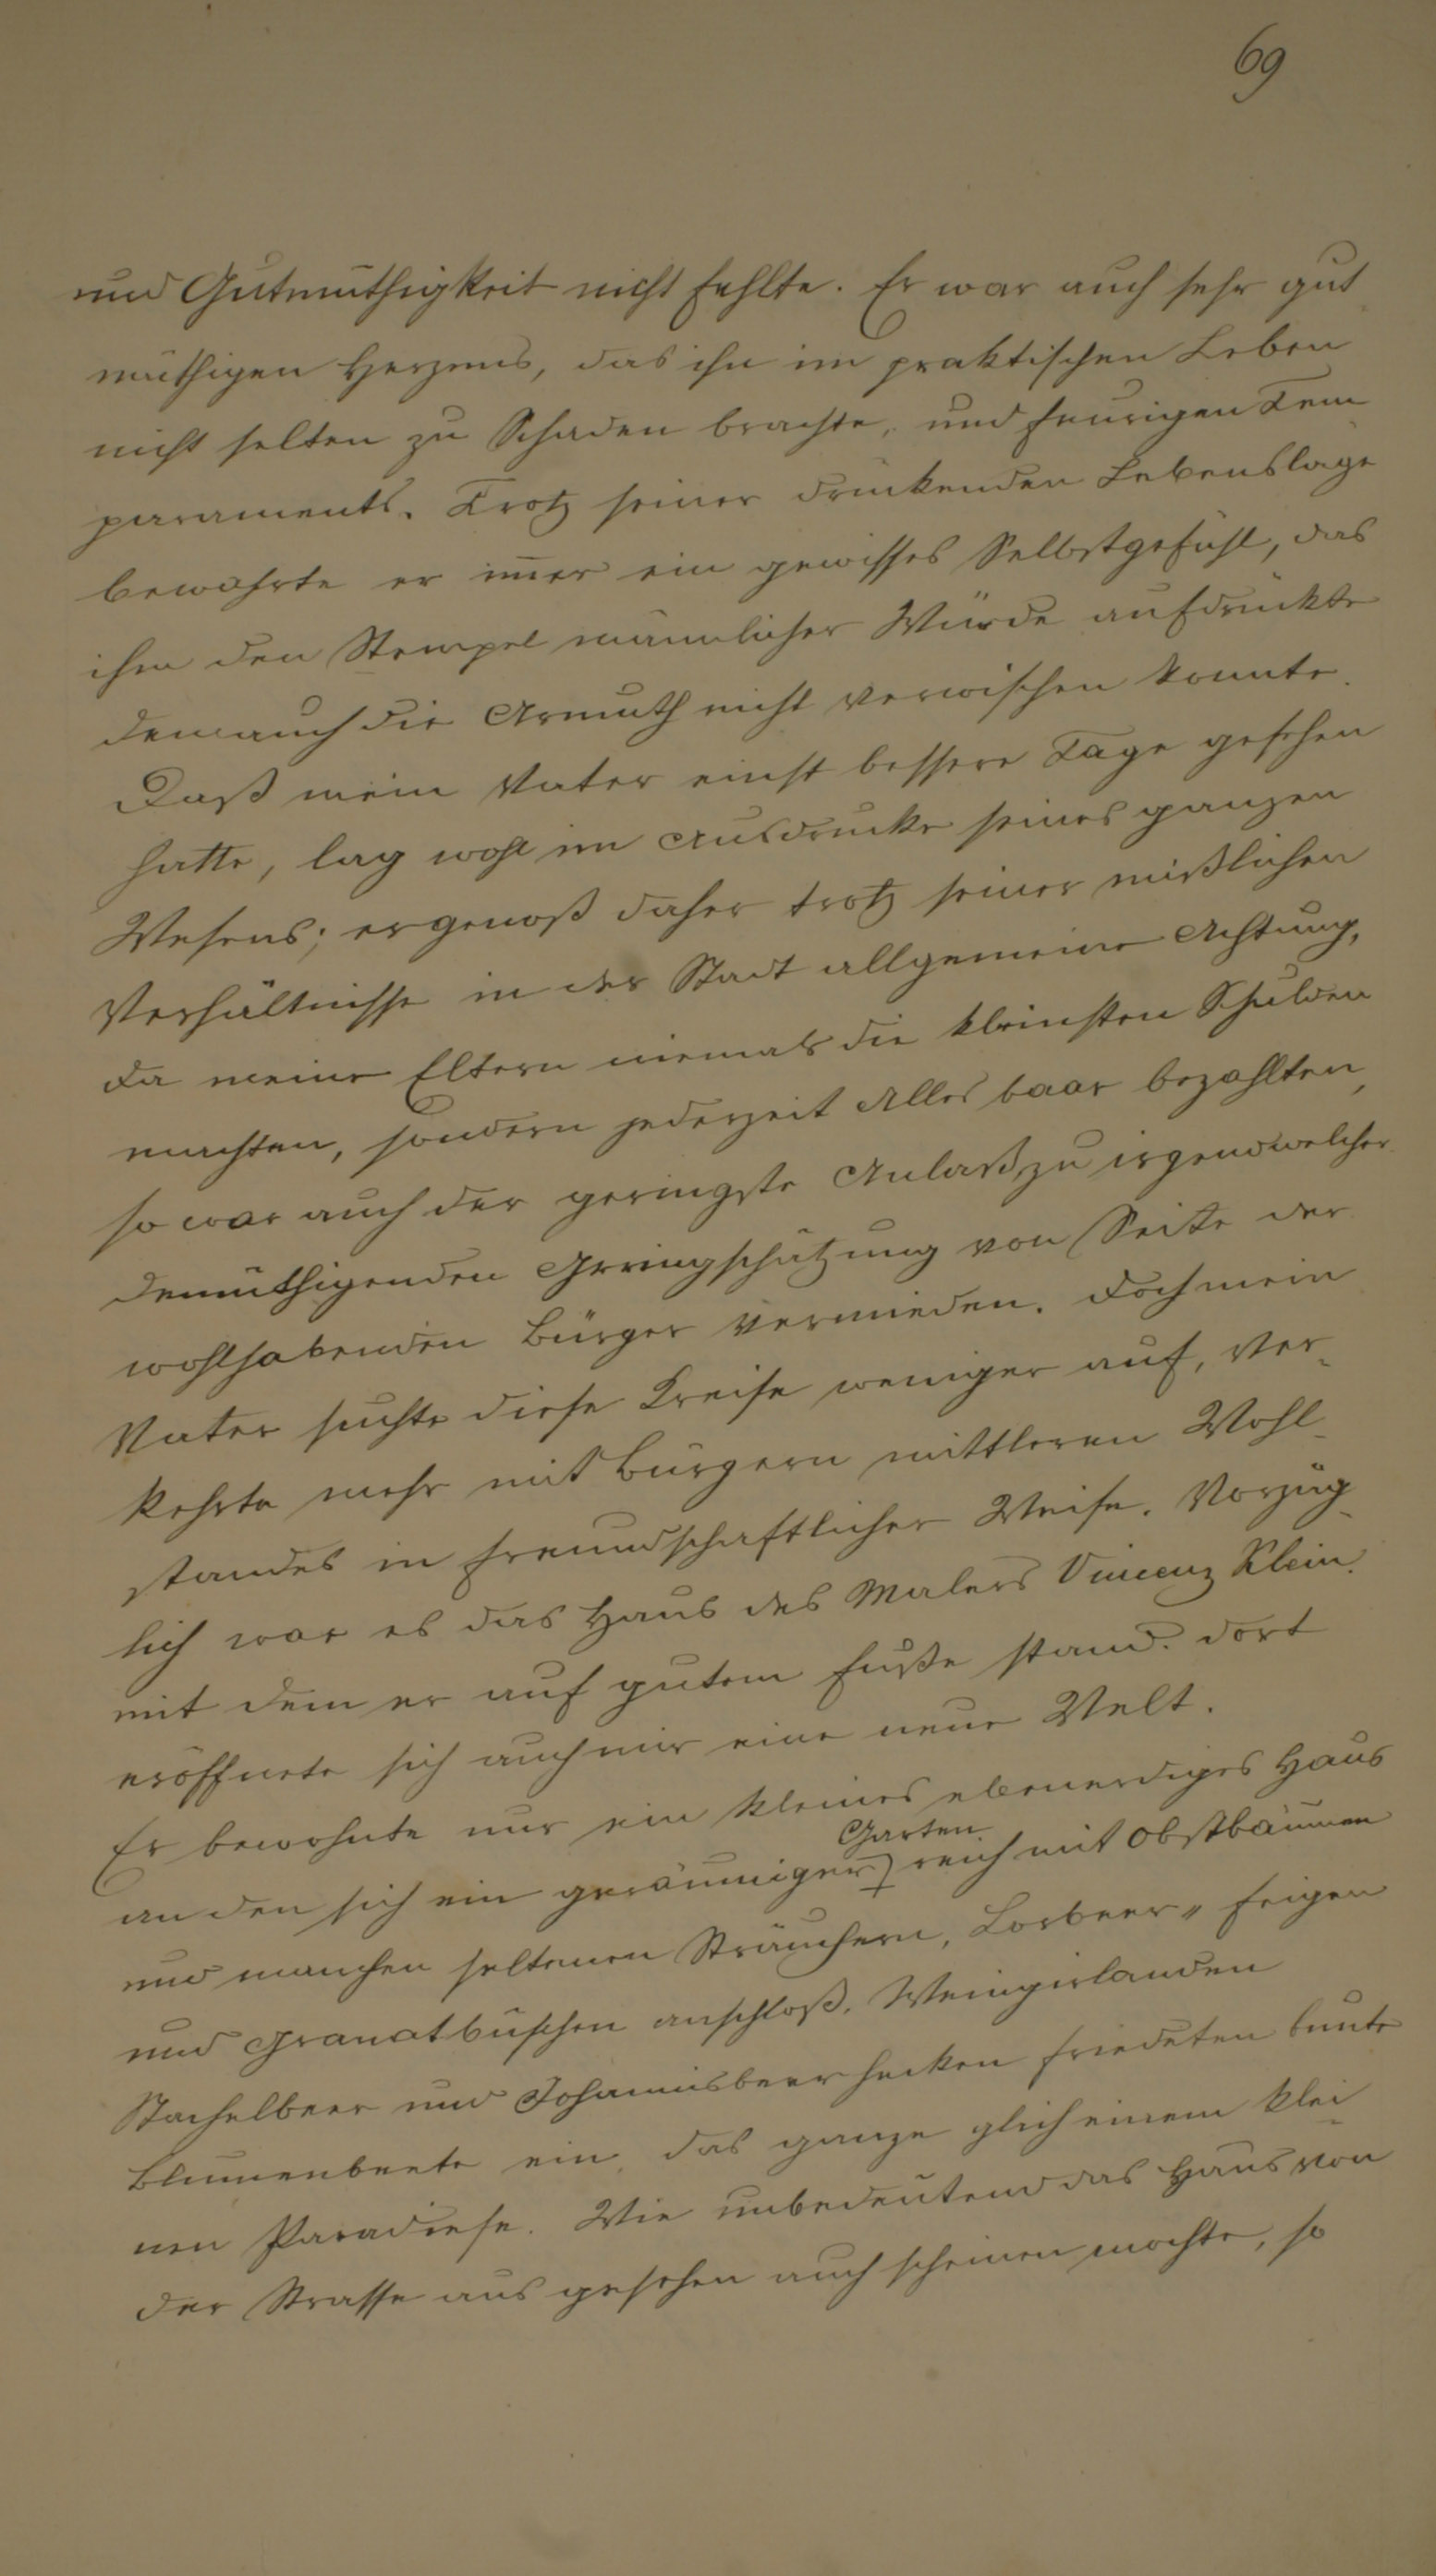 69
und Gutmüthigkeit nicht fehlte. Er war auch sehr gut
müthigen Herzens, das ihn im praktischen Leben
nicht selten zu Schaden brachte, und feurigen Tem
paraments. Trotz seiner drückenden Lebenslage
bewahrte er im̄er ein gewisses Selbstgefühl, das
ihm den Stempel männlicher Würde aufdrückte
dem auch die Armuth nicht verwischen konnte.
Daß mein Vater einst bessere Tage gesehen
hatte, lag wohl im Ausdrucke seines ganzen
Wesens; er genoß daher trotz seiner mißlichen
Verhältnisse in der Stadt allgemeine Achtung,
da meine Eltern niemals die kleinsten Schulden
machten, sondern jederzeit Alles baar bezahlten,
so war auch der geringste Anlaß, zu irgendwelcher
demüthigenden Geringschätzung von Seite der
wohlhabenden Bürger vermieden. Doch mein
Vater suchte diese Kreise weniger auf, ver-
kehrte mehr mit Bürgern mittleren Wohl-
standes in freundschaftlicher Weise. Vorzüg-
lich war es das Haus des Malers Vincenz Klein.
mit dem er auf gutem Fuße stand. dort
eröffnete sich auch mir eine neue Welt.
Er bewohnte nur ein kleines ebenerdiges Haus
Garten
an den sich ein geräumiger reich mit Obstbäumen
und manchen seltenen Sträuchern, Lorbeer- Feigen
und Granatbüschen anschloß. Weingirlanden
Stachelbeer und Johannisbeer hecken friedeten bunte
Blumenbeete ein, das ganze glich einem klei-
nen Paradiese. Wie unbedeutend das Haus von
der Strasse aus gesehen auch scheinen mochte, so